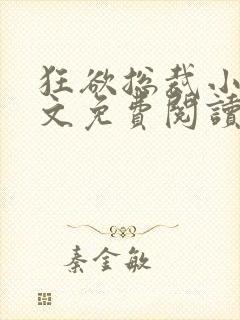 狂欲总裁小
文免費閱讀
秦金敏